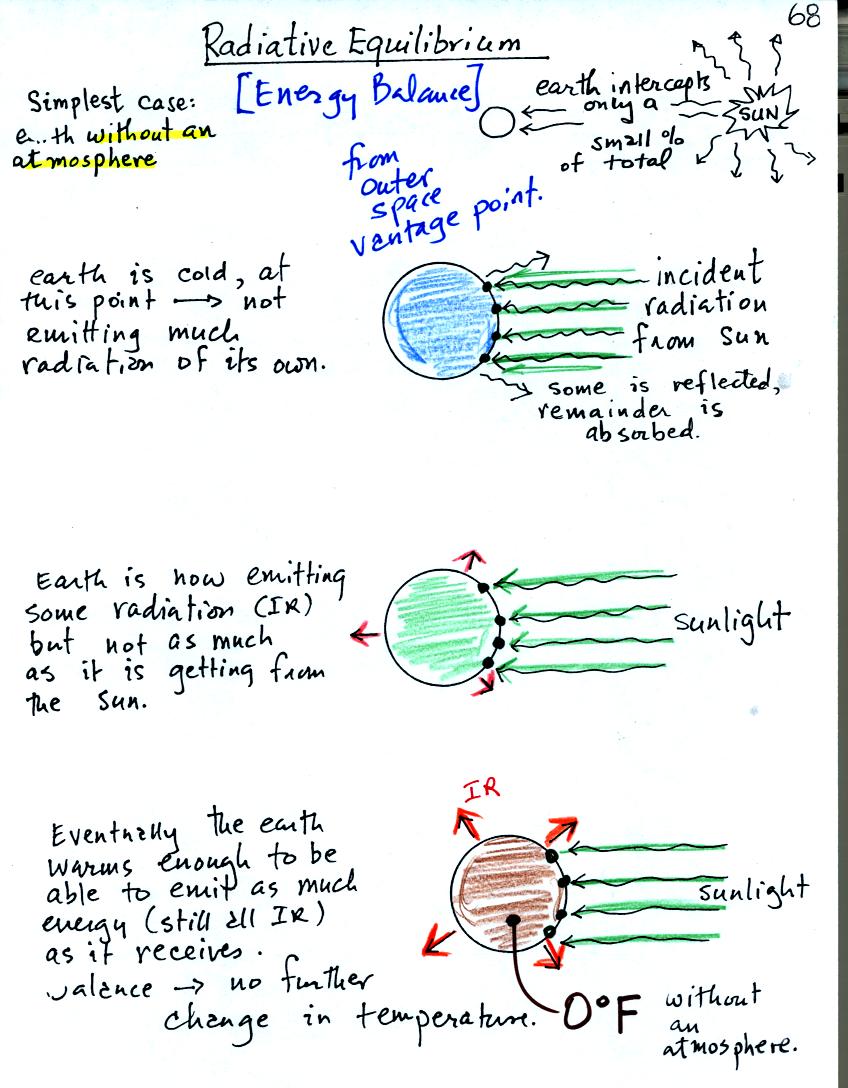 68
Radiative Equilibrium
[Energy Balance]
Simplest case:
e...th without an
atmosphere
earth intercepts
only a
small %
of total
SUN
from
outer
space
vantage point.
earth is cold, at
this point → not
emitting much
radiation of its own.
incident
radiation
from Sun
some is reflected,
remainder is
absorbed.
Earth is now emitting
some radiation (IR)
but not as much
as it is getting from
the Sun.
sunlight
IR
Eventually the earth
warms enough to be
able to emit as much
energy (still all IR)
as it receives.
balance → no further
change in temperature.
sunlight
0°F
without
an
atmosphere.